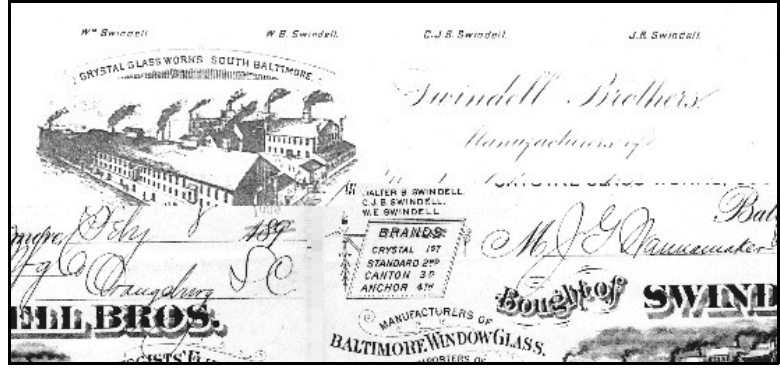 Wm Swindell. W.B. Swindell. C.J.B. Swindell. J.R. Swindell.
CRYSTAL GLASS WORKS SOUTH BALTIMORE.
Swindell Brothers.
Manufacturers of
CRYSTAL GLASS WORKS,
WALTER B. SWINDELL.
C.J.B. SWINDELL.
W.E. SWINDELL
BRANDS:
CRYSTAL 1ST
STANDARD 2ND
CANTON 3D
ANCHOR 4TH
more, Feby 8 189
Bal
M J G Wannamaker
Mfg Co Orangeburg S C
Bought of SWIND
ELL BROS.
MANUFACTURERS OF
BALTIMORE WINDOW GLASS,
GISTS' FL
PORTERS OF